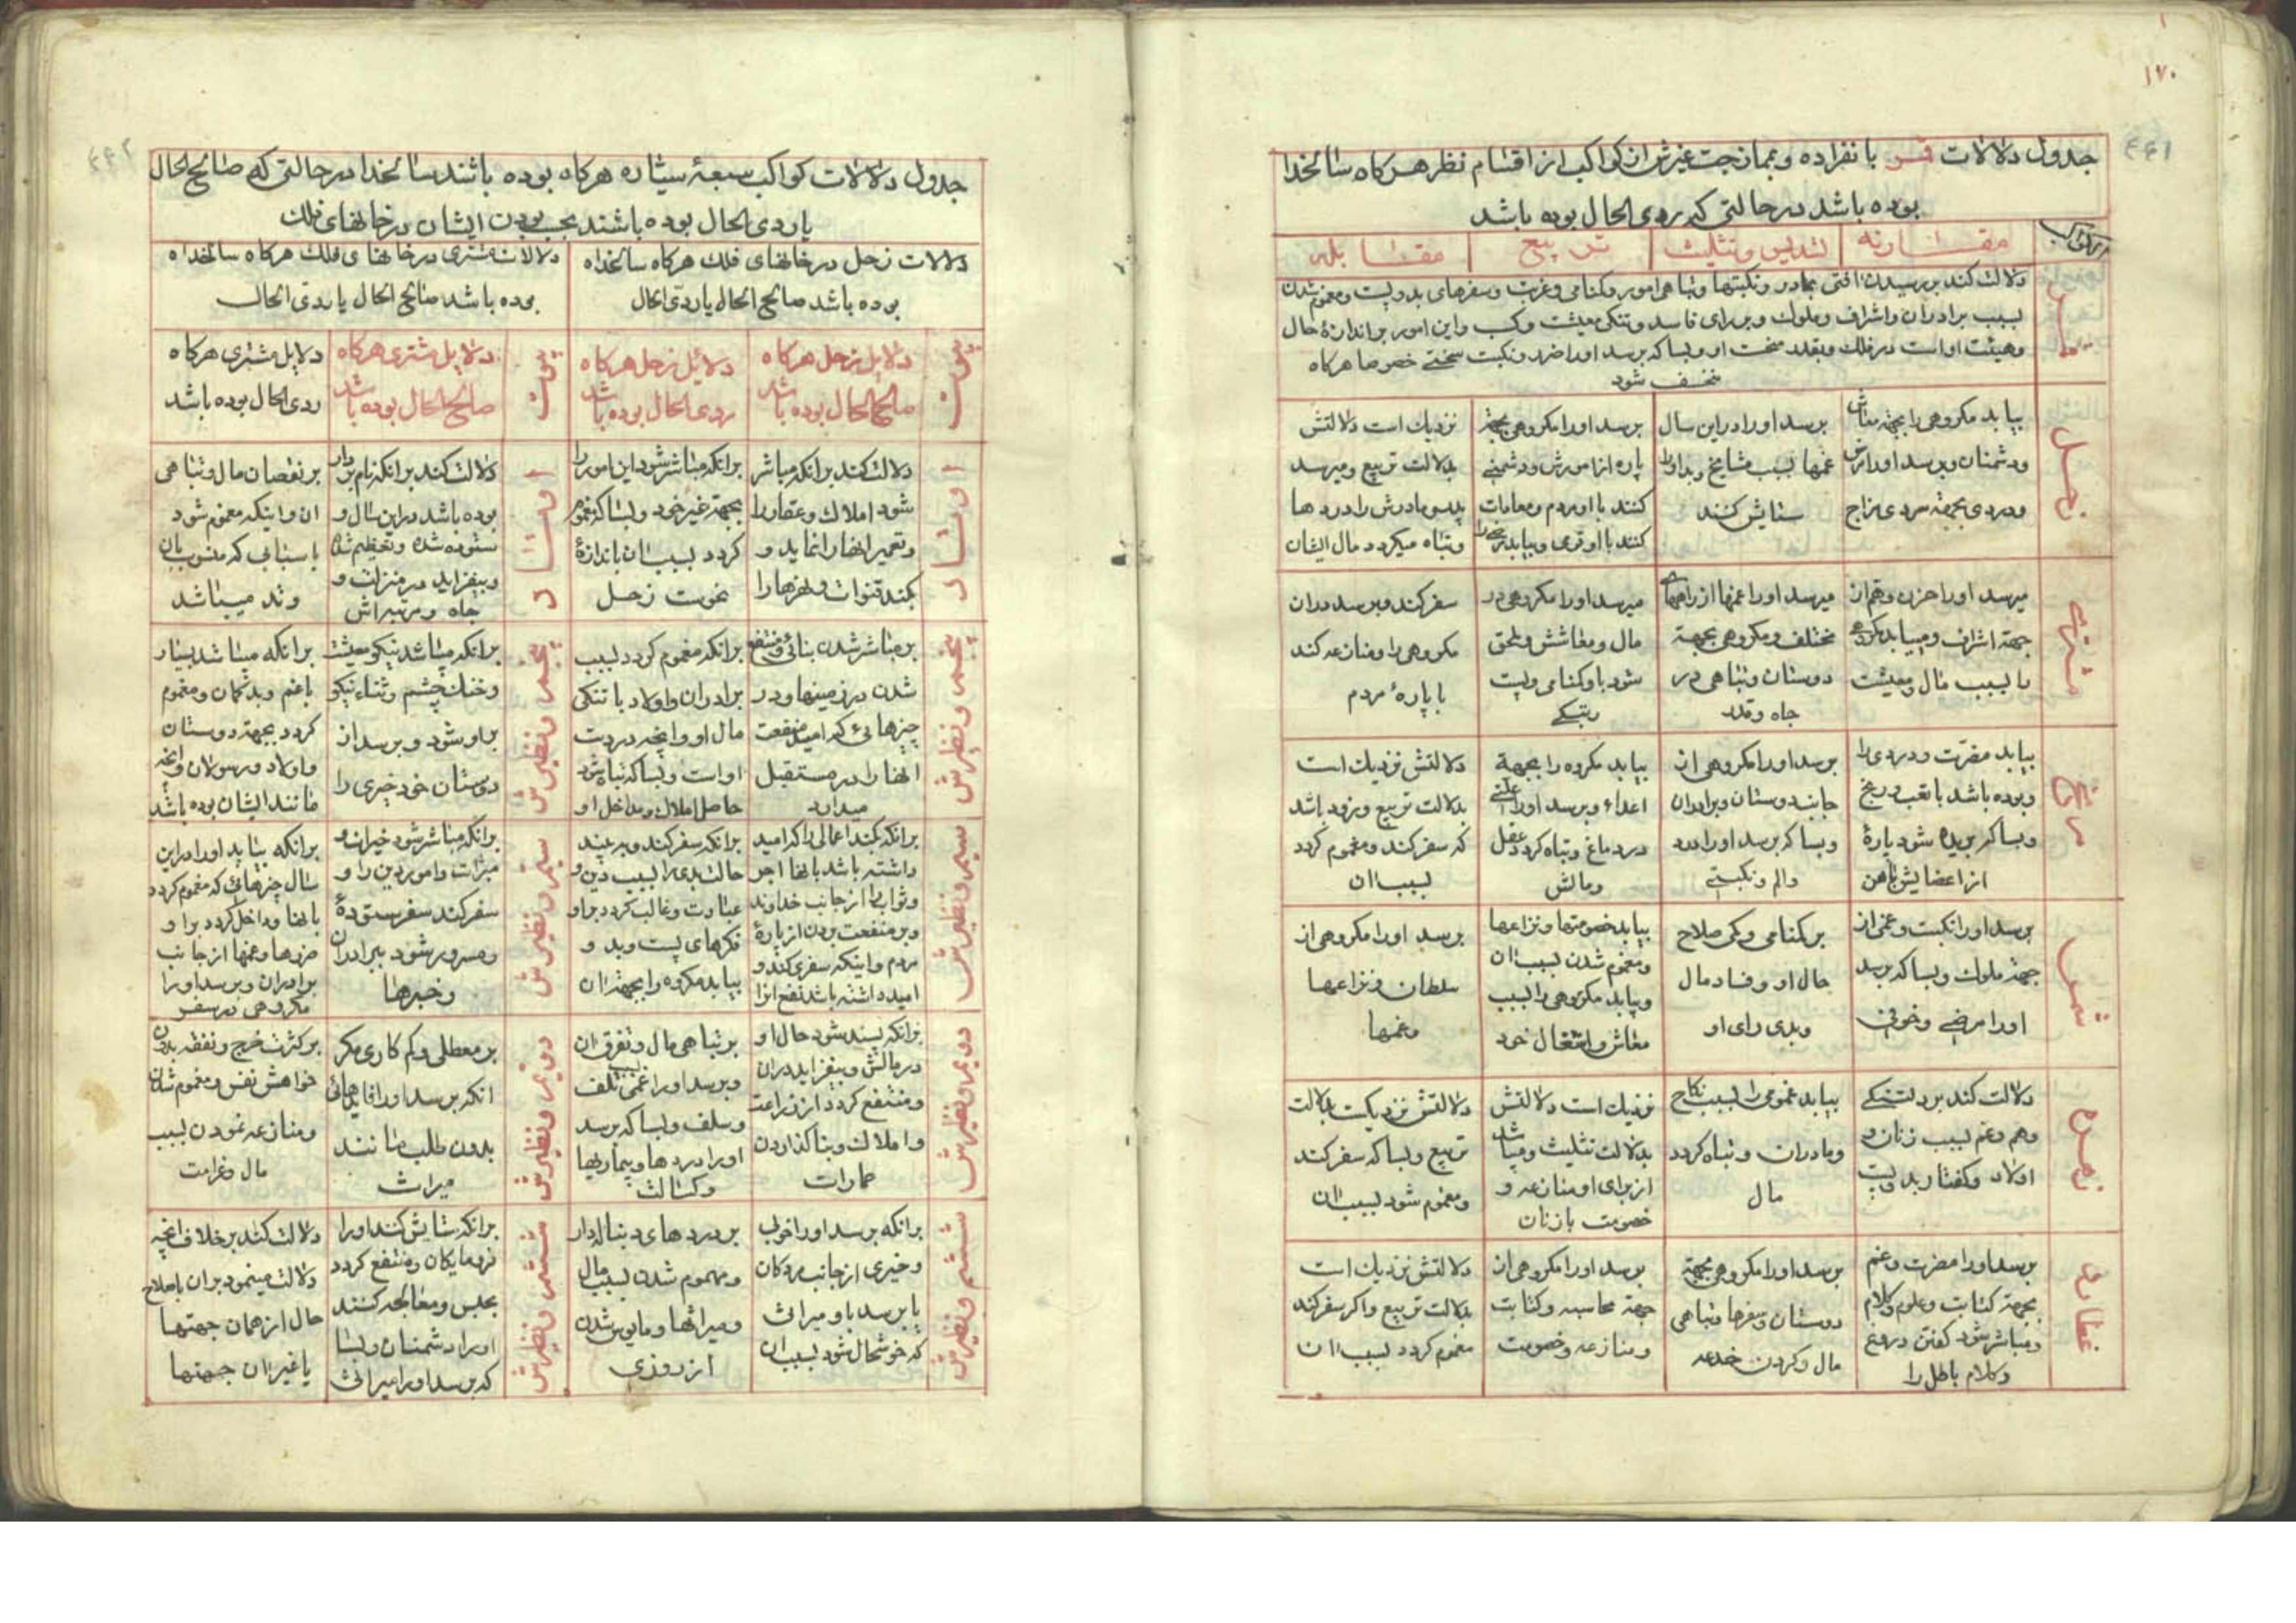 ۱۷۰
۴۴۱
جدول دلالات قمر بانفراده و بممازجت غیرش از کواکب از اقسام نظر هرکاه سالخدا
بوده باشد در حالتی که ردی الحال بوده باشد
الکواکب
مقارنه
تسدیس و تثلیث
تربیع
مقابله
قمر
دلالت کند بر رسیدن افتی بمادر و نکبتها و تباهی امور و کمنامی و غربت و سفرهای بد و پست و مغموم شدن
بسبب برادران و اشراف و ملوک و بر رای فاسد و تنکی معیشت و کسب و این امور بر اندازهٔ حال
و هیئت او است در فلک و بقدر نحوست او و بسا که برسد او را ضرر و نکبت سختی خصوصا هرکاه
منخسف شود
زحل
بیابد مکروهی را بجهة معاش
و دشمنان و برسد او را مرض
و دردی بجهة سردی مزاج
برسد او را در این سال
غمها بسبب مشایخ و بد او را
ستایش کنند
برسد او را مکروهی بجهة
پاره از امورش و دشمنی
کنند با او مردم و معادات
کنند با او قوی و بیابد رنجی را
نزدیک است دلالتش
بدلالت تربیع و میرسد
پدر و مادرش را دردها
و تباه میکردد مال ایشان
مشتری
میرسد او را حزن و هم از
جهة اشراف و میابد مکروهی
را بسبب مال و معیشت
میرسد او را غمها از راههای
مختلف و مکروهی بجهة
دوستان و تباهی در
جاه و قدر
میرسد او را مکروهی در
مال و معاشش و ملحق
شود باو کمنامی و پست
رتبکی
سفر کند و برسد در ان
مکروهی را و منازعه کند
با پارهٔ مردم
مریخ
بیابد مضرت و دردی را
و بوده باشد با تعب و رنج
و بسا که بریده شود پارهٔ
از اعضایش باهن
برسد او را مکروهی از
جانب دوستان و برادران
و بسا که برسد او را درد
و الم و نکبتی
بیابد مکروه را بجهة
اعداء و برسد او را علتی
در دماغ و تباه کردد عقل
و مالش
دلالتش نزدیک است
بدلالت تربیع و زود باشد
که سفر کند و مغموم کردد
بسبب ان
شمس
برسد او را نکبت و غمی از
جهة ملوک و بسا که برسد
او را مرضی و خوفی
بر کمنامی و کمی صلاح
حال او و فساد مال
و بدی رای او
بیابد خصومتها و نزاعها
و مغموم شدن بسبب ان
و بیابد مکروهی را بسبب
معاش و اشتغال خود
برسد او را مکروهی از
سلطان و نزاعها
و غمها
زهره
دلالت کند بر دلتنکی
و هم و غم بسبب زنان و
اولاد و کفتار بد و پست
بیابد غمومی را بسبب نکاح
و مادران و تباه کردد
مال
نزدیک است دلالتش
بدلالت تثلیث و میباشد
از برای او منازعه و
خصومت با زنان
دلالتش نزدیکست بدلالت
تربیع و بسا که سفر کند
و مغموم شود بسبب ان
عطارد
برسد او را مضرت و غم
بجهة کتابت و علوم و کلام
و مباشر شود کفتن دروغ
و کلام باطل را
برسد او را مکروهی بجهة
دوستان و سفرها و تباهی
مال و کردن خدعه
برسد او را مکروهی از
جهة محاسبه و کتابت
و منازعه و خصومت
دلالتش نزدیک است
بدلالت تربیع و اکر سفر کند
مغموم کردد بسبب ان
۴۴۲
جدول دلالات کواکب سبعهٔ سیاره هرکاه بوده باشند سالخدا در حالتی که صالح الحال
یا ردی الحال بوده باشند بحسب بودن ایشان در خانهای فلک
دلالات زحل در خانهای فلک هرکاه سالخداه
بوده باشد صالح الحال یا ردی الحال
دلالات مشتری در خانهای فلک هرکاه سالخداه
بوده باشد صالح الحال یا ردی الحال
بیوت
دلایل زحل هرکاه
صالح الحال بوده باشد
دلائل زحل هرکاه
ردی الحال بوده باشد
بیوت
دلایل مشتری هرکاه
صالح الحال بوده باشد
دلایل مشتری هرکاه
ردی الحال بوده باشد
اوتاد
دلالت کند برانکه مباشر
شود املاک و عقار را
و تعمیر انها را نماید و
بکند قنوات و نهرها را
برانکه مباشر شود این امور را
بجهة غیر خود و بسا که مغموم
کردد بسبب ان باندازهٔ
نحوست زحل
اوتاد
دلالت کند برانکه نام بردار
بوده باشد در این سال و
ستوده شده و تعظیم شده
و بیفزاید در منزلت و
جاه و مرتبه اش
بر نقصان مال و تباهی
ان و اینکه مغموم شود
باسبابی که منسوب بان
وتد میباشد
پنجم و نظیرش
بر مباشر شدن بنائی و منتفع
شدن در زمینها و در
چیزهائی که امید منفعت
انها را در مستقبل
میدارد
برانکه مغموم کردد بسبب
برادران و اولاد با تنکی
مال او و انچه در دست
او است و بسا که تباه شود
حاصل املاک و مداخل او
پنجم و نظیرش
برانکه میباشد نیکو معیشت
و خنک چشم و ثناء نیکو
بر او شود و برسد از
دوستان خود چیزی را
برانکه میباشد بسیار
با غم و بدکمان و مغموم
کردد بجهة دوستان
و اولاد و رسولان و انچه
مانند ایشان بوده باشد
سیم و نظیرش
برانکه بکند اعمالی را که امید
داشته باشد بانها اجر
و ثواب را از جانب خداوند
و بر منفعت بردن از پارهٔ
مردم و اینکه سفری کند و
امید داشته باشد نفع انرا
برانکه سفر کند و به بیند
حالت بدی را بسبب دین و
عبادت و غالب کردد بر او
فکرهای پست و بد و
بیابد مکروه را بجهة ان
سیم و نظیرش
برانکه مباشر شود خیرات و
مبرات و امور دین را و
سفر کند سفر ستودهٔ
و مسرور شود ببرادران
و خبرها
برانکه بیابد او را در این
سال چیزهائی که مغموم کردد
بانها و داخل کردد بر او
ضررها و غمها از جانب
برادران و برسد او را
مکروهی در سفر
دویم و نظیرش
برانکه پسند شود حال او
در مالش و بیفزاید در ان
و منتفع کردد از زراعت
و املاک و بنا کذاردن
عمارات
بر تباهی مال و تفرق ان
و برسد او را غمی بسبب تلف
و سلف و بسا که برسد
او را دردها و بیماریها
و کسالت
دویم و نظیرش
بر معطلی و کم کاری مکر
انکه برسد او را فایدهائی
بدون طلب مانند
میراث
بر کثرت خرج و نفقه بدون
خواهش نفس و مغموم شدن
و منازعه نمودن بسبب
مال و غرامت
ششم و نظیرش
برانکه برسد او را خوبی
و خیری از جانب مردکان
یا برسد باو میراث
که خوشحال شود بسبب ان
بر دردهای دنباله دار
و مهموم شدن بسبب مال
و میراثها و مایوس شدن
از روزی
ششم و نظیرش
برانکه ستایش کنند او را
فرومایکان و منتفع کردد
بحبس و معالجه کنند
او را دشمنان و بسا
که برسد او را میراث
دلالت کند بر خلاف انچه
دلالت مینمود بران با صلاح
حال از همان جهتها
یا غیر ان جهتها